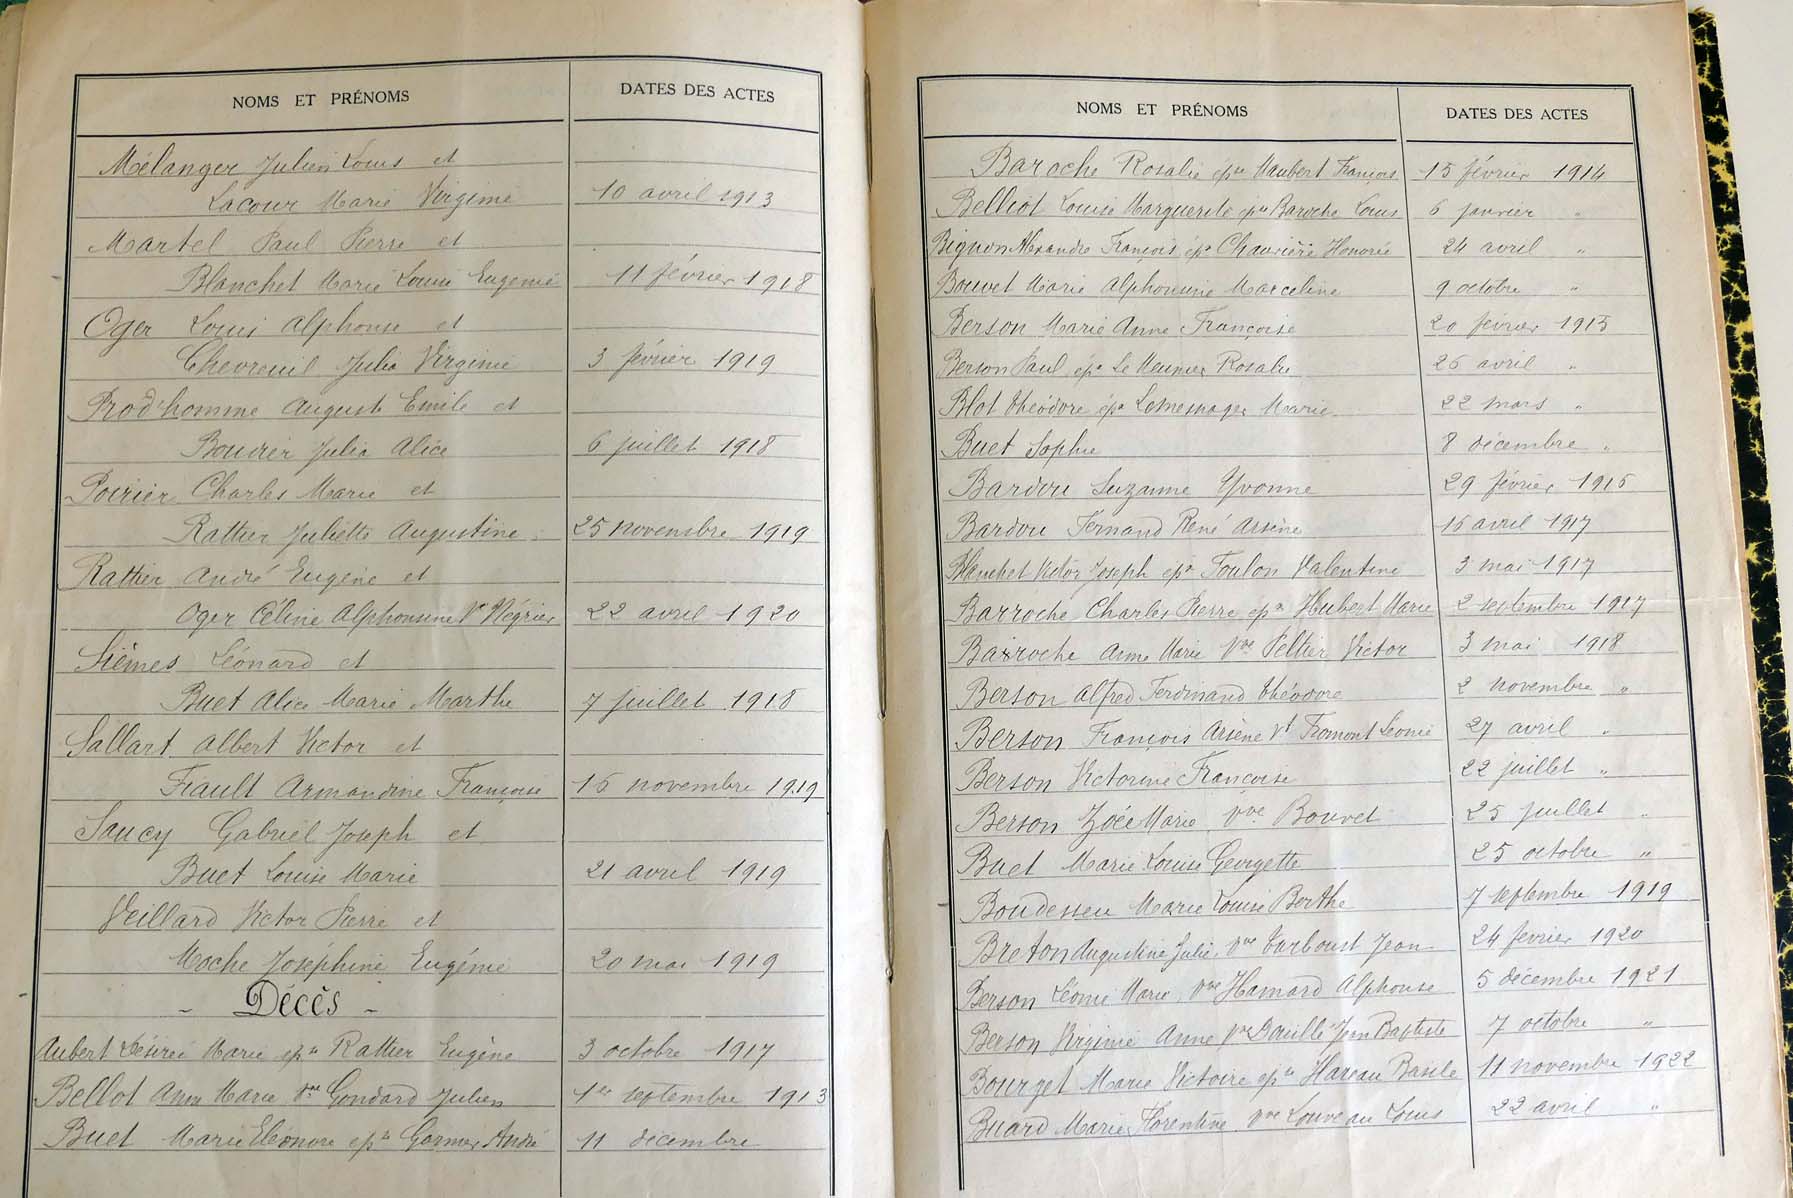 NOMS ET PRÉNOMS DATES DES ACTES
Mélanger Julien Louis et
Lacour Marie Virginie 10 avril 1913
Martel Paul Pierre et
Blanchet Marie Louise Eugénie 11 février 1918
Oger Louis Alphonse et
Chevreuil Julia Virginie 3 février 1919
Prod'homme Auguste Emile et
Bouvier Julia Alice 6 juillet 1918
Poirier Charles Marie et
Rattier Juliette Augustine 25 novembre 1919
Rattier André Eugène et
Oger Céline Alphonsine Vve Négrier 22 avril 1920
Sièmes Léonard et
Buet Alice Marie Marthe 7 juillet 1918
Sallart Albert Victor et
Fiault Armandine Françoise 15 novembre 1919
Saucy Gabriel Joseph et
Buet Louise Marie 21 avril 1919
Veillard Victor Pierre et
Moche Joséphine Eugénie 20 mai 1919
- Décès -
Aubert Désirée Marie épse Rattier Eugène 3 octobre 1917
Bellot Anna Marie Vve Gondard Julien 1er septembre 1913
Buet Marie Eléonore épse Garnier André 11 décembre
NOMS ET PRÉNOMS DATES DES ACTES
Baroche Rosalie épse Maubert François 15 février 1914
Belliot Louise Marguerite épse Baroche Louis 6 janvier "
Bignon Alexandre François épx Chauvière Honorée 24 avril "
Bouvet Marie Alphonsine Marceline 9 octobre "
Berson Marie Anne Françoise 20 février 1915
Berson Paul épx Le Meunier Rosalie 25 avril "
Blot Théodore épx Lemesnager Marie 22 mars "
Buet Sophie 8 décembre "
Bardou Suzanne Yvonne 29 février 1916
Bardou Fernand René Arsène 15 avril 1917
Blanchet Victor Joseph épx Foulon Valentine 3 mai 1917
Barroche Charles Pierre épx Hubert Marie 2 septembre 1917
Barroche Anne Marie Vve Peltier Victor 3 mai 1918
Berson Alfred Ferdinand Théodore 2 novembre "
Berson François Arsène Vf Fromont Léonie 27 avril "
Berson Victorine Françoise 22 juillet "
Berson Zoée Marie Vve Bouvet 25 juillet "
Buet Marie Louise Georgette 25 octobre "
Boudesseu Marie Louise Berthe 7 septembre 1919
Breton Augustine Julie Vve Tarboust Jean 24 février 1920
Berson Léonie Marie Vve Hamard Alphonse 5 décembre 1921
Berson Virginie Anne Vve Jean Baptiste 7 octobre "
Bourget Marie Victoire épse Hareau Basile 11 novembre 1922
Buard Marie Florentine Vve Louveau Louis 22 avril "